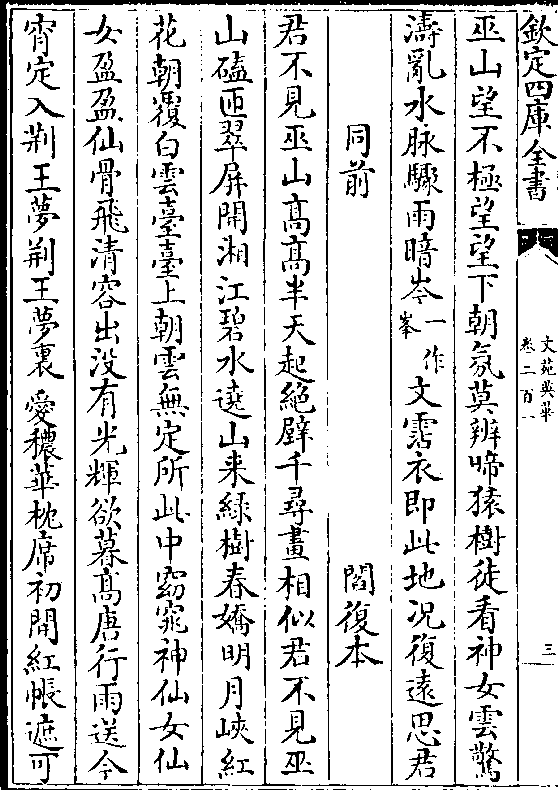 欽定四庫全書
文苑英華
卷二百一
三
巫山望不極望望下朝氛莫辨啼猿樹徒看神女雲驚
濤亂水脉驟雨暗岑一作峯文霑衣即此地况復遠思君
同前
閻復本
君不見巫山髙髙半天起絶壁千尋畫相似君不見巫
山磕匝翠屏開湘江碧水遶山来緑樹春嬌明月峽紅
花朝覆白雲臺臺上朝雲無定所此中窈窕神仙女仙
女盈盈仙骨飛清容出没有光輝欲暮髙唐行雨送今
宵定入荆王夢荆王夢裏愛穠華枕席初開紅帳遮可